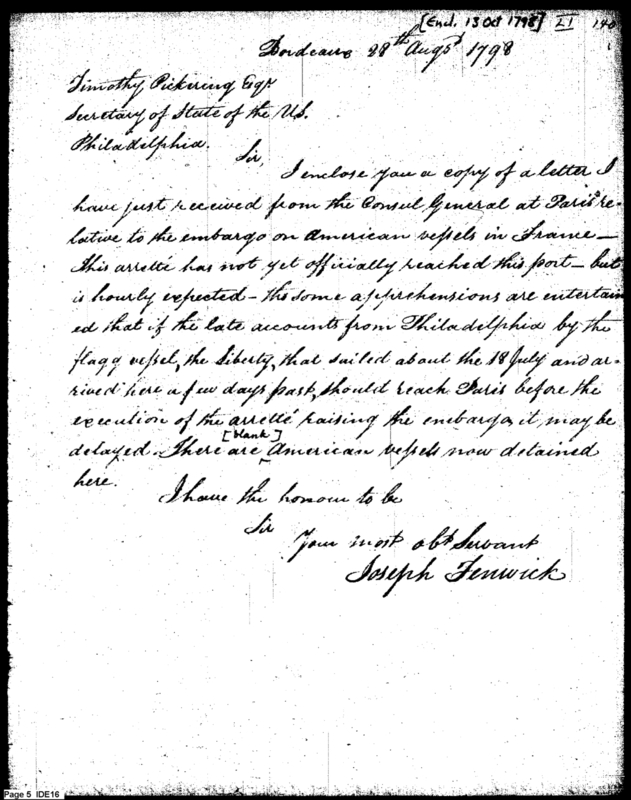 [Encl. 13 Oct 1798] LI 140
Bordeaux 28th Augst 1798
Timothy Pickering Esqr
Secretary of State of the U.S.
Philadelphia.
Sir,
I enclose you a copy of a letter I
have just received from the Consul General at Paris re-
lative to the embargo on American vessels in France—
this arretté has not yet officially reached this port— but
is hourly expected— tho some apprehensions are entertain
ed that if the late accounts from Philadelphia by the
flagg vessel, the Liberty, that sailed about the 18 July and ar-
rived here a few days past, should reach Paris before the
execution of the arretté raising the embargo, it may be
delayed. There are [blank] American vessels now detained
here.
I have the honour to be
Sir
Your most obt Servant
Joseph Fenwick
Page 5 IDE16